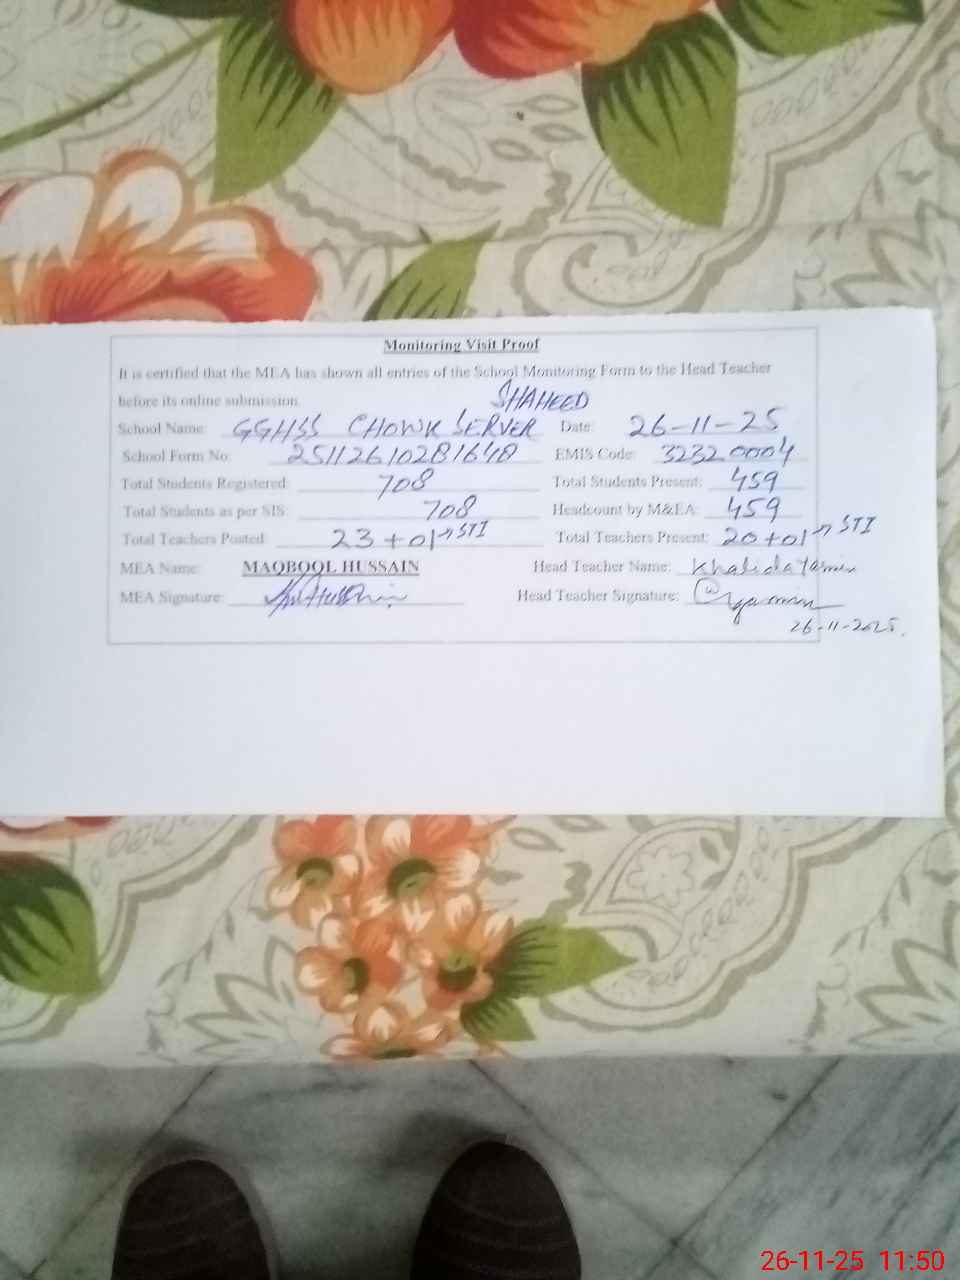 Monitoring Visit Proof
It is certified that the MEA has shown all entries of the School Monitoring Form to the Head Teacher
before its online submission.
SHAHEED
School Name: GGHSS CHOWK SERVER Date: 26-11-25
School Form No: 25112610281648 EMIS Code: 32320004
Total Students Registered: 708 Total Students Present: 459
Total Students as per SIS: 708 Headcount by M&EA: 459
Total Teachers Posted: 23+01→STI Total Teachers Present: 20+01→STI
MEA Name: MAQBOOL HUSSAIN Head Teacher Name: Khalida Yasmin
MEA Signature: Head Teacher Signature:
26-11-2025.
26-11-25 11:50